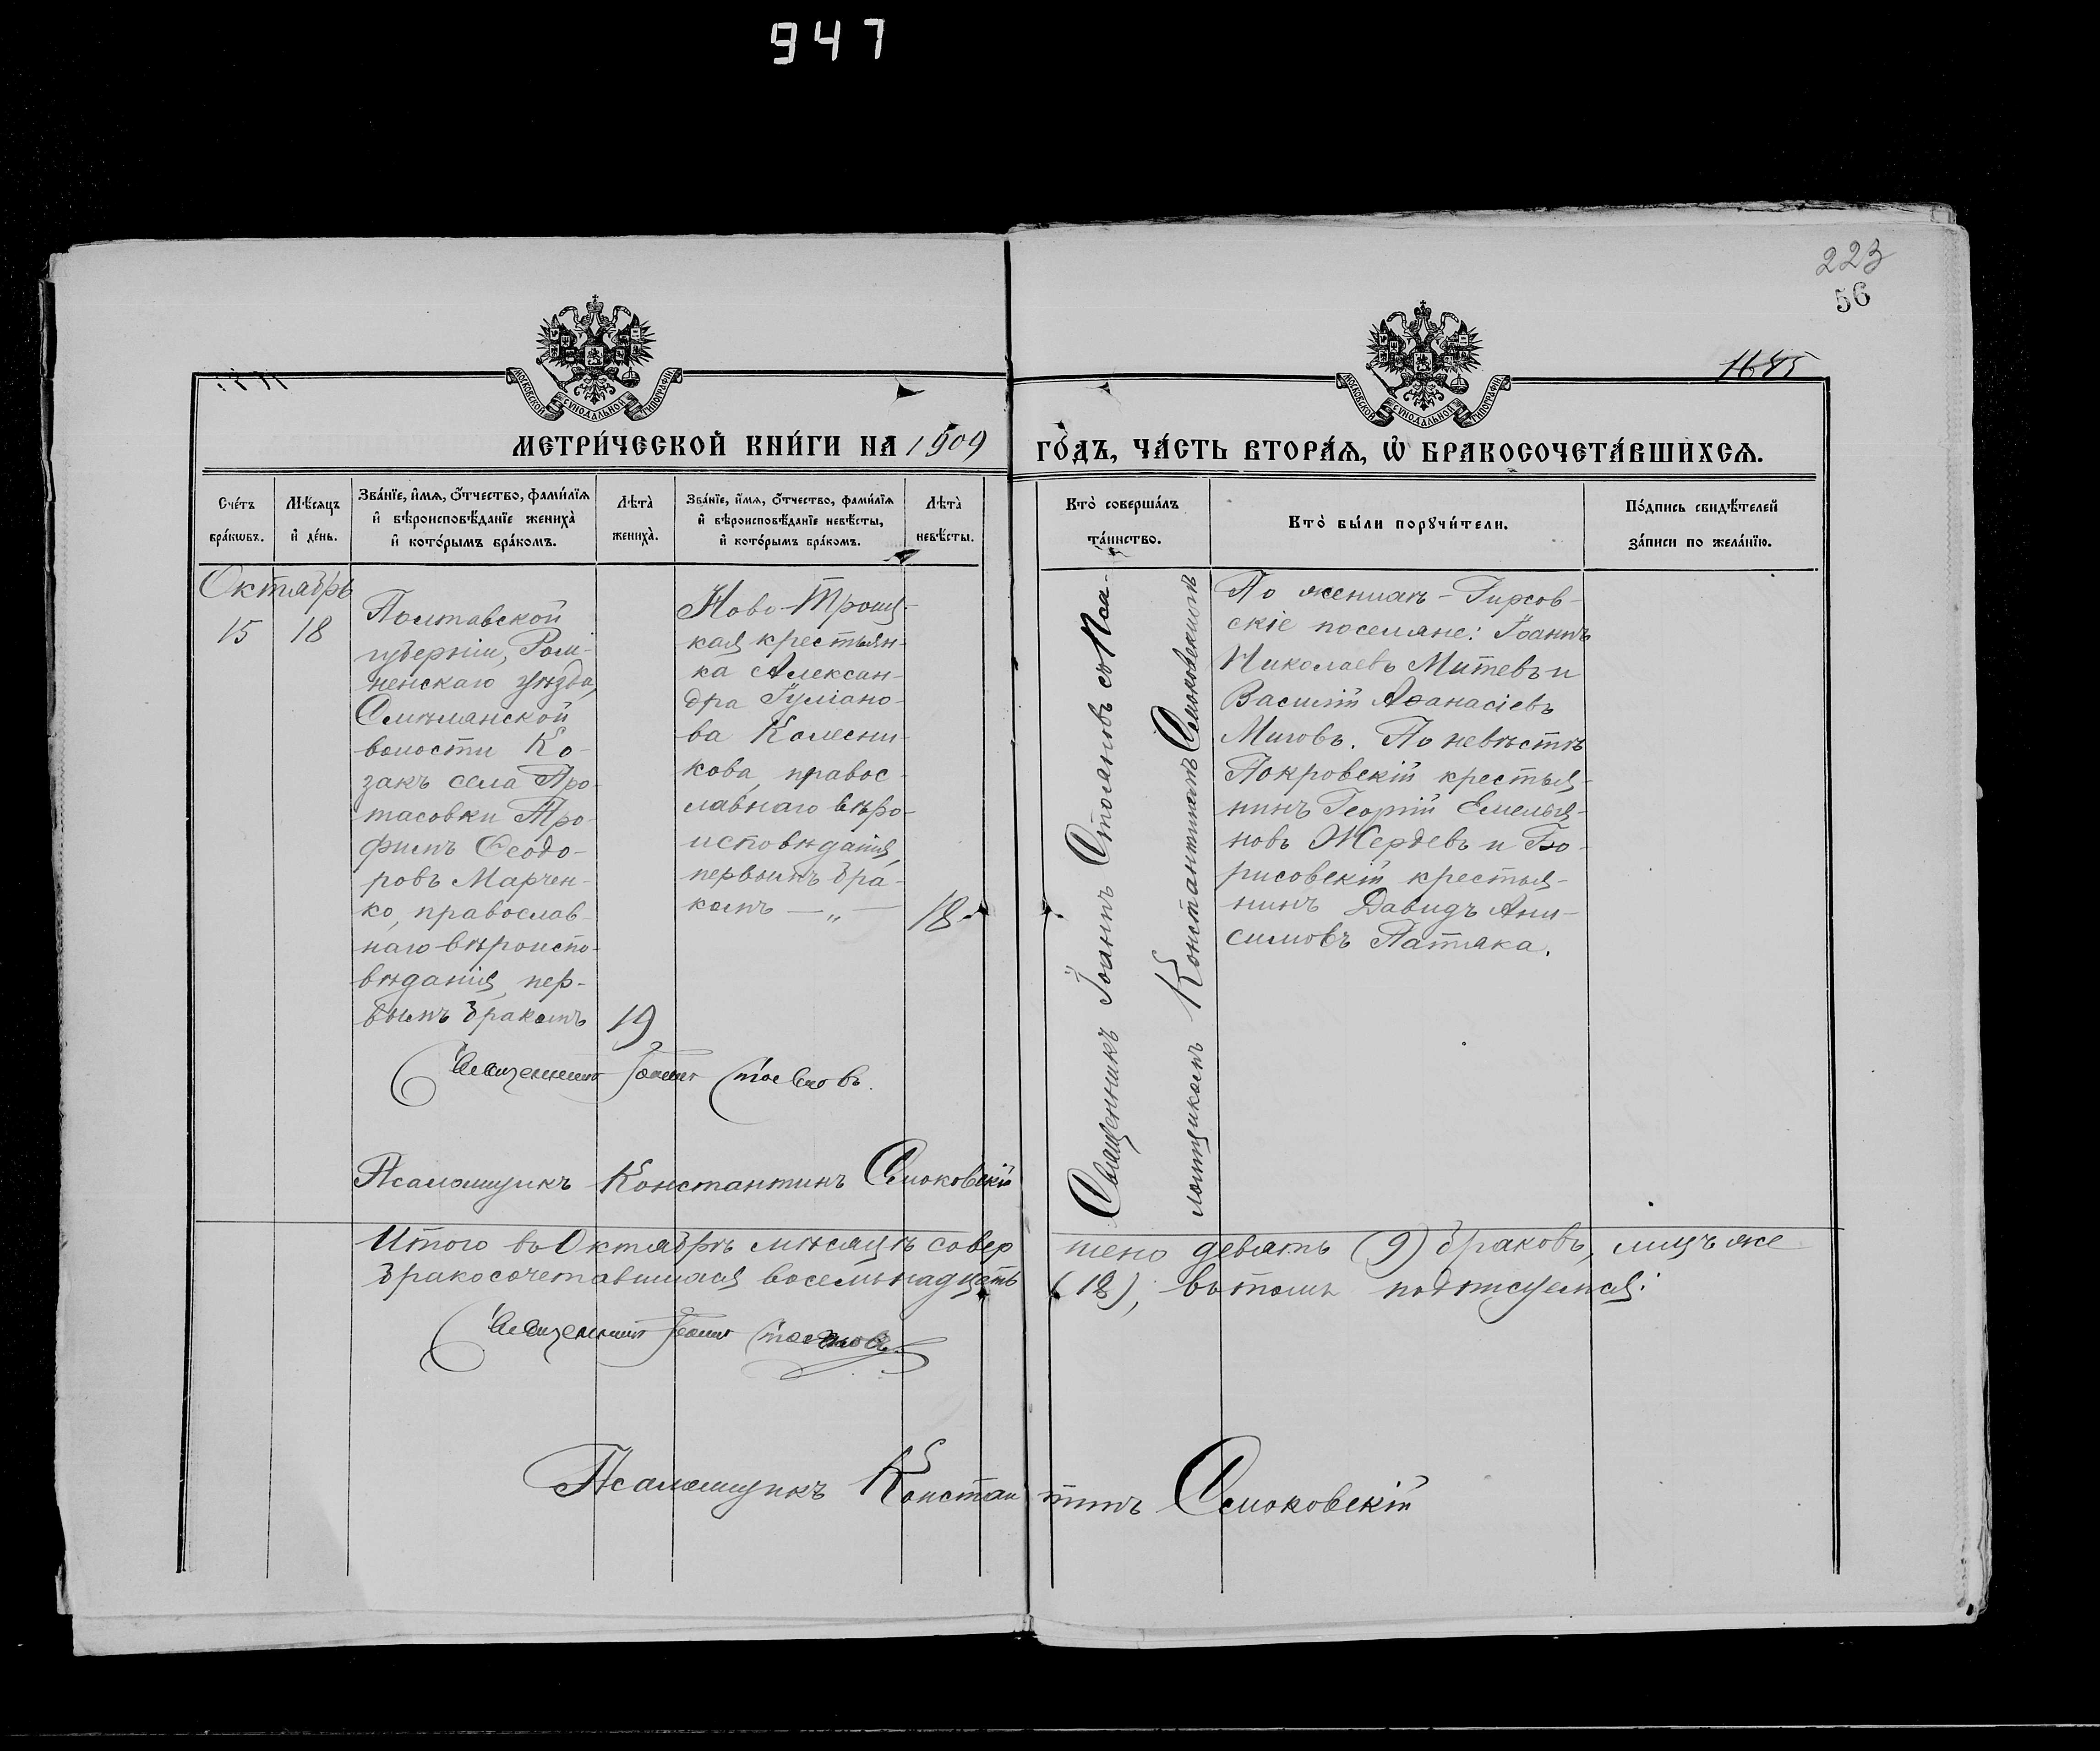 947
223
56
1645
МОСКОВСКОЙ СѴНОДАЛЬНОЙ ТИПОГРАФІИ
МОСКОВСКОЙ СѴНОДАЛЬНОЙ ТИПОГРАФІИ
МЕТРИ́ЧЕСКОЙ КНИ́ГИ НА 1909
ГО́ДЪ, ЧА́СТЬ ВТОРА́Я, Ѡ҆ БРАКОСОЧЕТА́ВШИХСЯ.
Сче́тъ
бра́кѡвъ.
Мѣ́сяцъ
и҆ де́нь.
Зва́нїе, и҆́мя, ѻ҆́тчество, фами́лїя
и҆ вѣроисповѣ́данїе жениха̀
и҆ кото́рымъ бра́комъ.
Лѣта̀
жениха̀.
Зва́нїе, и҆́мя, ѻ҆́тчество, фами́лїя
и҆ вѣроисповѣ́данїе невѣ́сты,
и҆ кото́рымъ бра́комъ.
Лѣта̀
невѣ́сты.
Кто̀ соверша́лъ
та́инство.
Кто̀ бы́ли порꙋчи́тели.
По́дпись свидѣ́телей
за́писи по жела́нїю.
Октябрь
15
18
Полтавской
губерніи, Ром-
ненскаго уѣзда,
Смѣлянской
волости Ко-
закъ села Про-
тасовки Тро-
фимъ Ѳеодо-
ровъ Марчен-
ко, православ-
наго вѣроиспо-
вѣданія, пер-
вымъ бракомъ
19
Ново-Троиц-
кая крестьян-
ка Алексан-
дра Іуліано-
ва Колесни-
кова, правос-
лавнаго вѣро-
исповѣданія,
первымъ бра-
комъ — „ —
18
Священникъ Іоаннъ Стояновъ со Пса-
ломщикомъ Константиномъ Семоковскимъ
По женихѣ – Гирсов-
скіе поселяне: Іоаннъ
Николаевъ Митевъ и
Василій Аѳанасіевъ
Мировъ. По невѣстѣ
Покровскій крестья-
нинъ Георгій Емелья-
новъ Жердевъ и Бо-
рисовскій крестья-
нинъ Давидъ Ани-
симовъ Патяка.
Священникъ Іоаннъ Стояновъ.
Псаломщикъ Константинъ Семоковскій
Итого въ Октябрѣ мѣсяцѣ совер
шено девять (9) браковъ, лицъ же
бракосочетавшихся восемьнадцать
(18), въ томъ подписуемся:
Священникъ Іоаннъ Стояновъ
Псаломщикъ Константинъ Семоковскій